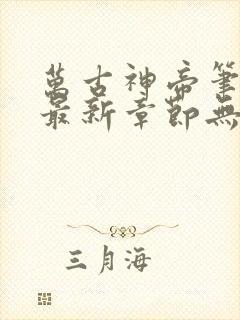 萬古神帝筆
最新章節無
三月海